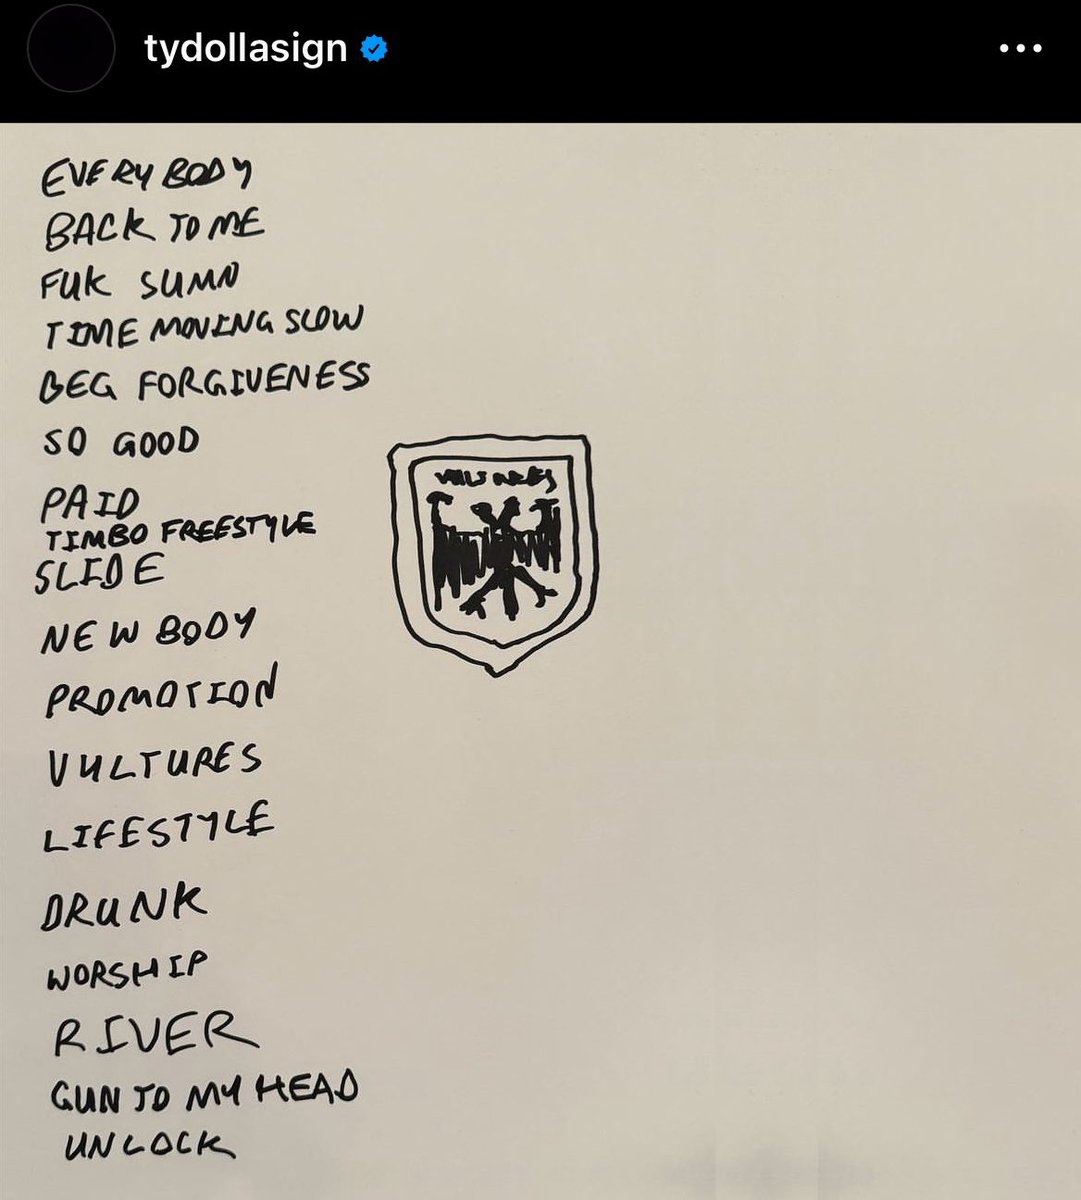 tydollasign
EVERYBODY
BACK TO ME
FUK SUMN
TIME MOVING SLOW
BEG FORGIVENESS
SO GOOD
VULTURES
PAID
TIMBO FREESTYLE
SLIDE
NEW BODY
PROMOTION
VULTURES
LIFESTYLE
DRUNK
WORSHIP
RIVER
GUN TO MY HEAD
UNLOCK